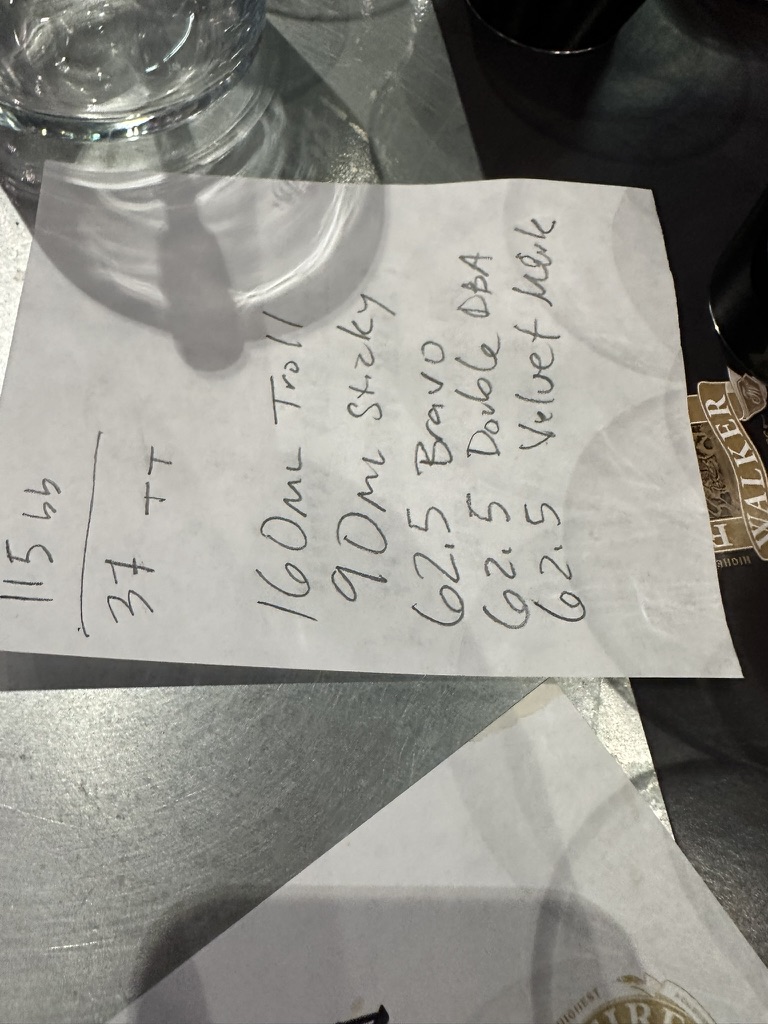 115 bb
37 TT
160mL Troll
90mL Sticky
62.5 Bravo
62.5 Double DBA
62.5 Velvet Merk
WALKER
HIGHEST
F
HIGHEST
IRE